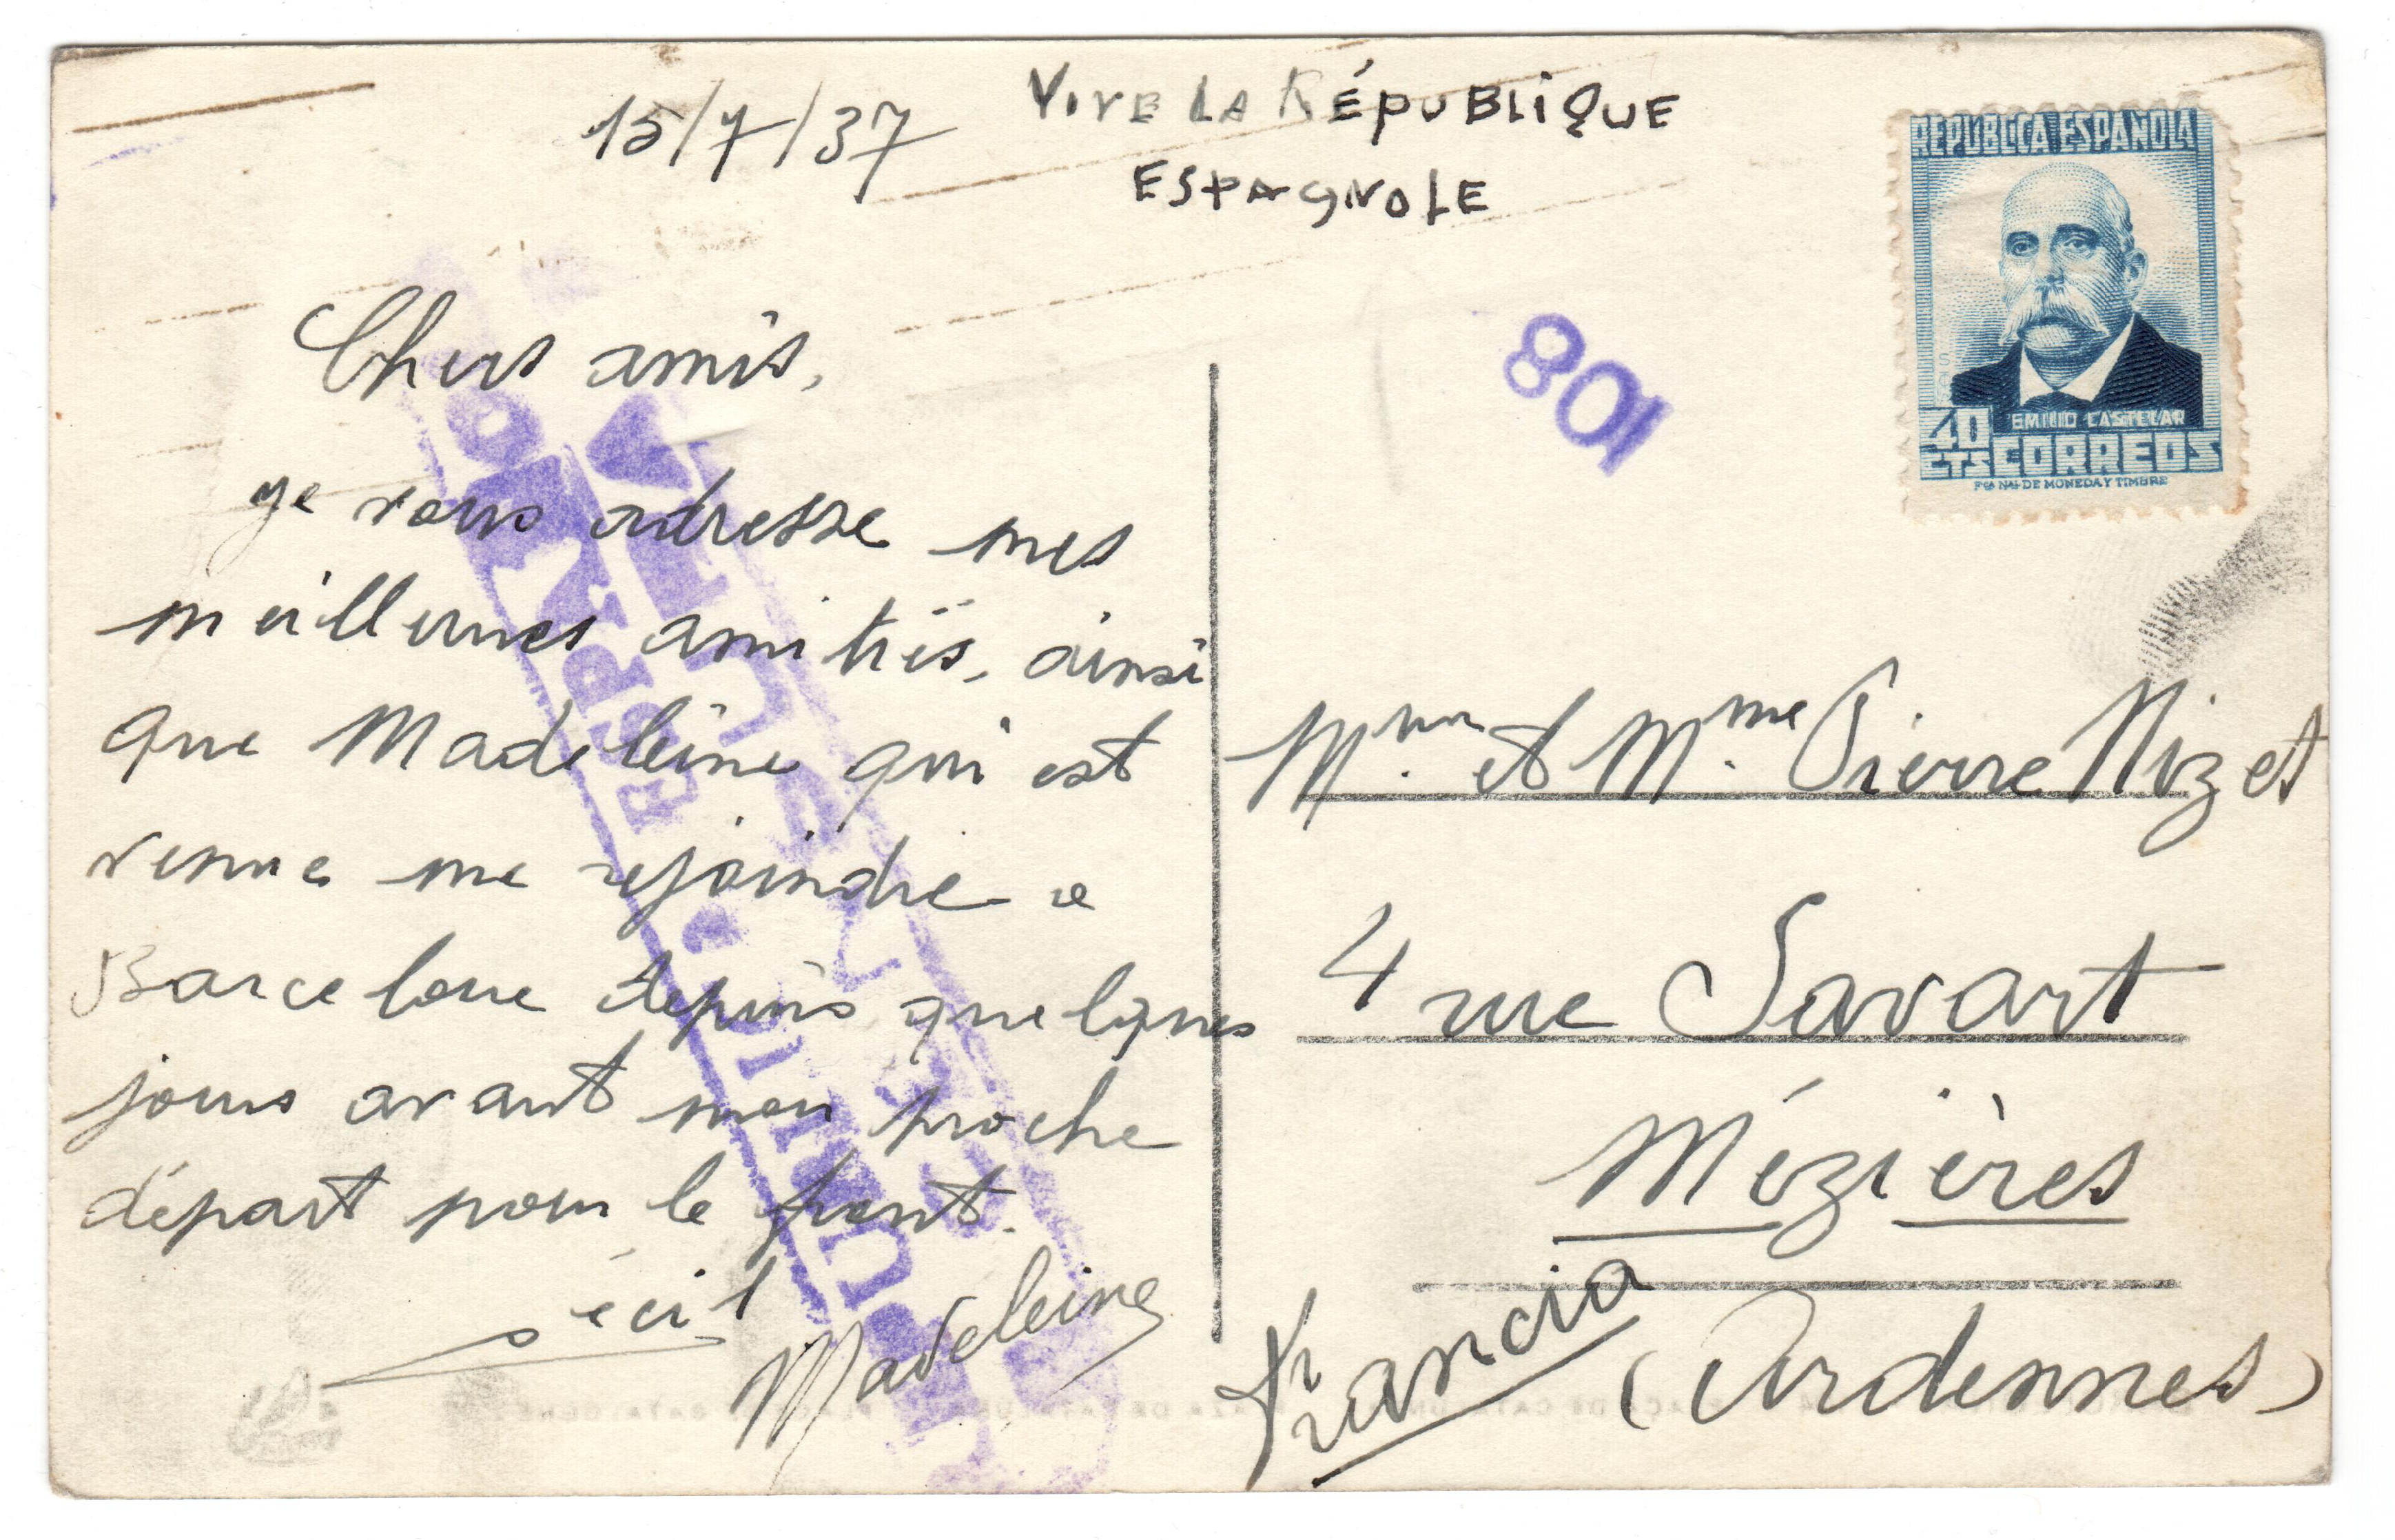 15/7/37
VIVE LA RÉPUBLIQUE
ESPAGNOLE
REPUBLICA ESPAÑOLA
EMILIO CASTELAR
40
CTS CORREOS
FCA NAL DE MONEDA Y TIMBRE
801
Chers amis,
je vous adresse mes
meilleures amitiés, ainsi
que Madeleine qui est
venue me rejoindre a
Barcelone depuis quelques
jours avant mon proche
départ pour le front.
Cécil
Madeleine
Mr et Mme Pierre Nizet
4 rue Savart
Mézières
(Ardennes)
Francia